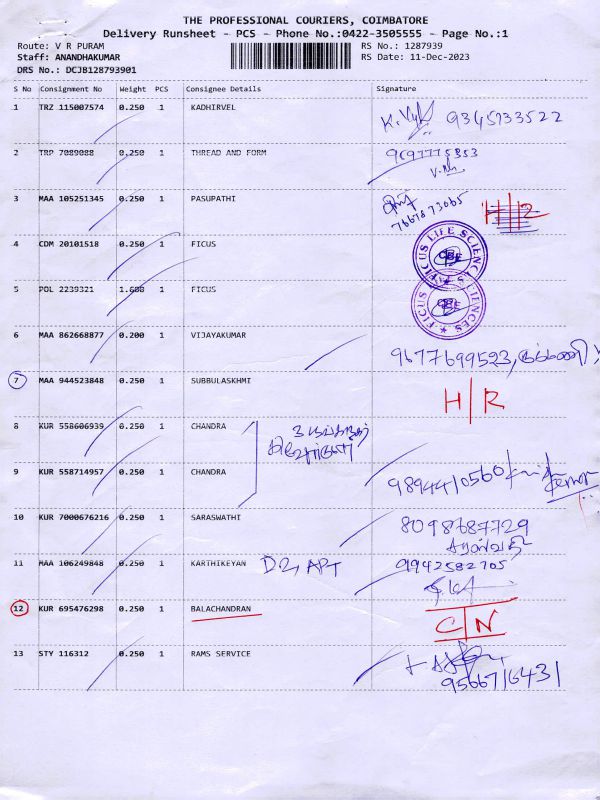 THE PROFESSIONAL COURIERS, COIMBATORE
Delivery Runsheet - PCS - Phone No.:0422-3505555 - Page No.:1
Route: V R PURAM RS No.: 1287939
Staff: ANANDHAKUMAR RS Date: 11-Dec-2023
DRS No.: DCJB128793901
S No Consignment No Weight PCS Consignee Details Signature
1 TRZ 115007574 0.250 1 KADHIRVEL 9345133522
2 TRP 7089088 0.250 1 THREAD AND FORM 9697775853
3 MAA 105251345 0.250 1 PASUPATHI 7667873065
4 CDM 20101518 0.250 1 FICUS FICUS LIFE SCIENCES CBE
5 POL 2239321 1.600 1 FICUS FICUS LIFE SCIENCES CBE
6 MAA 862668877 0.200 1 VIJAYAKUMAR 9677699523,
7 MAA 944523848 0.250 1 SUBBULASKHMI H/R
8 KUR 558606939 0.250 1 CHANDRA
9 KUR 558714957 0.250 1 CHANDRA 9894410560
10 KUR 7000676216 0.250 1 SARASWATHI 8098687729
சரஸ்வதி
11 MAA 106249848 0.250 1 KARTHIKEYAN D2, APT 9942582705
12 KUR 695476298 0.250 1 BALACHANDRAN C/N
13 STY 116312 0.250 1 RAMS SERVICE
9566716431